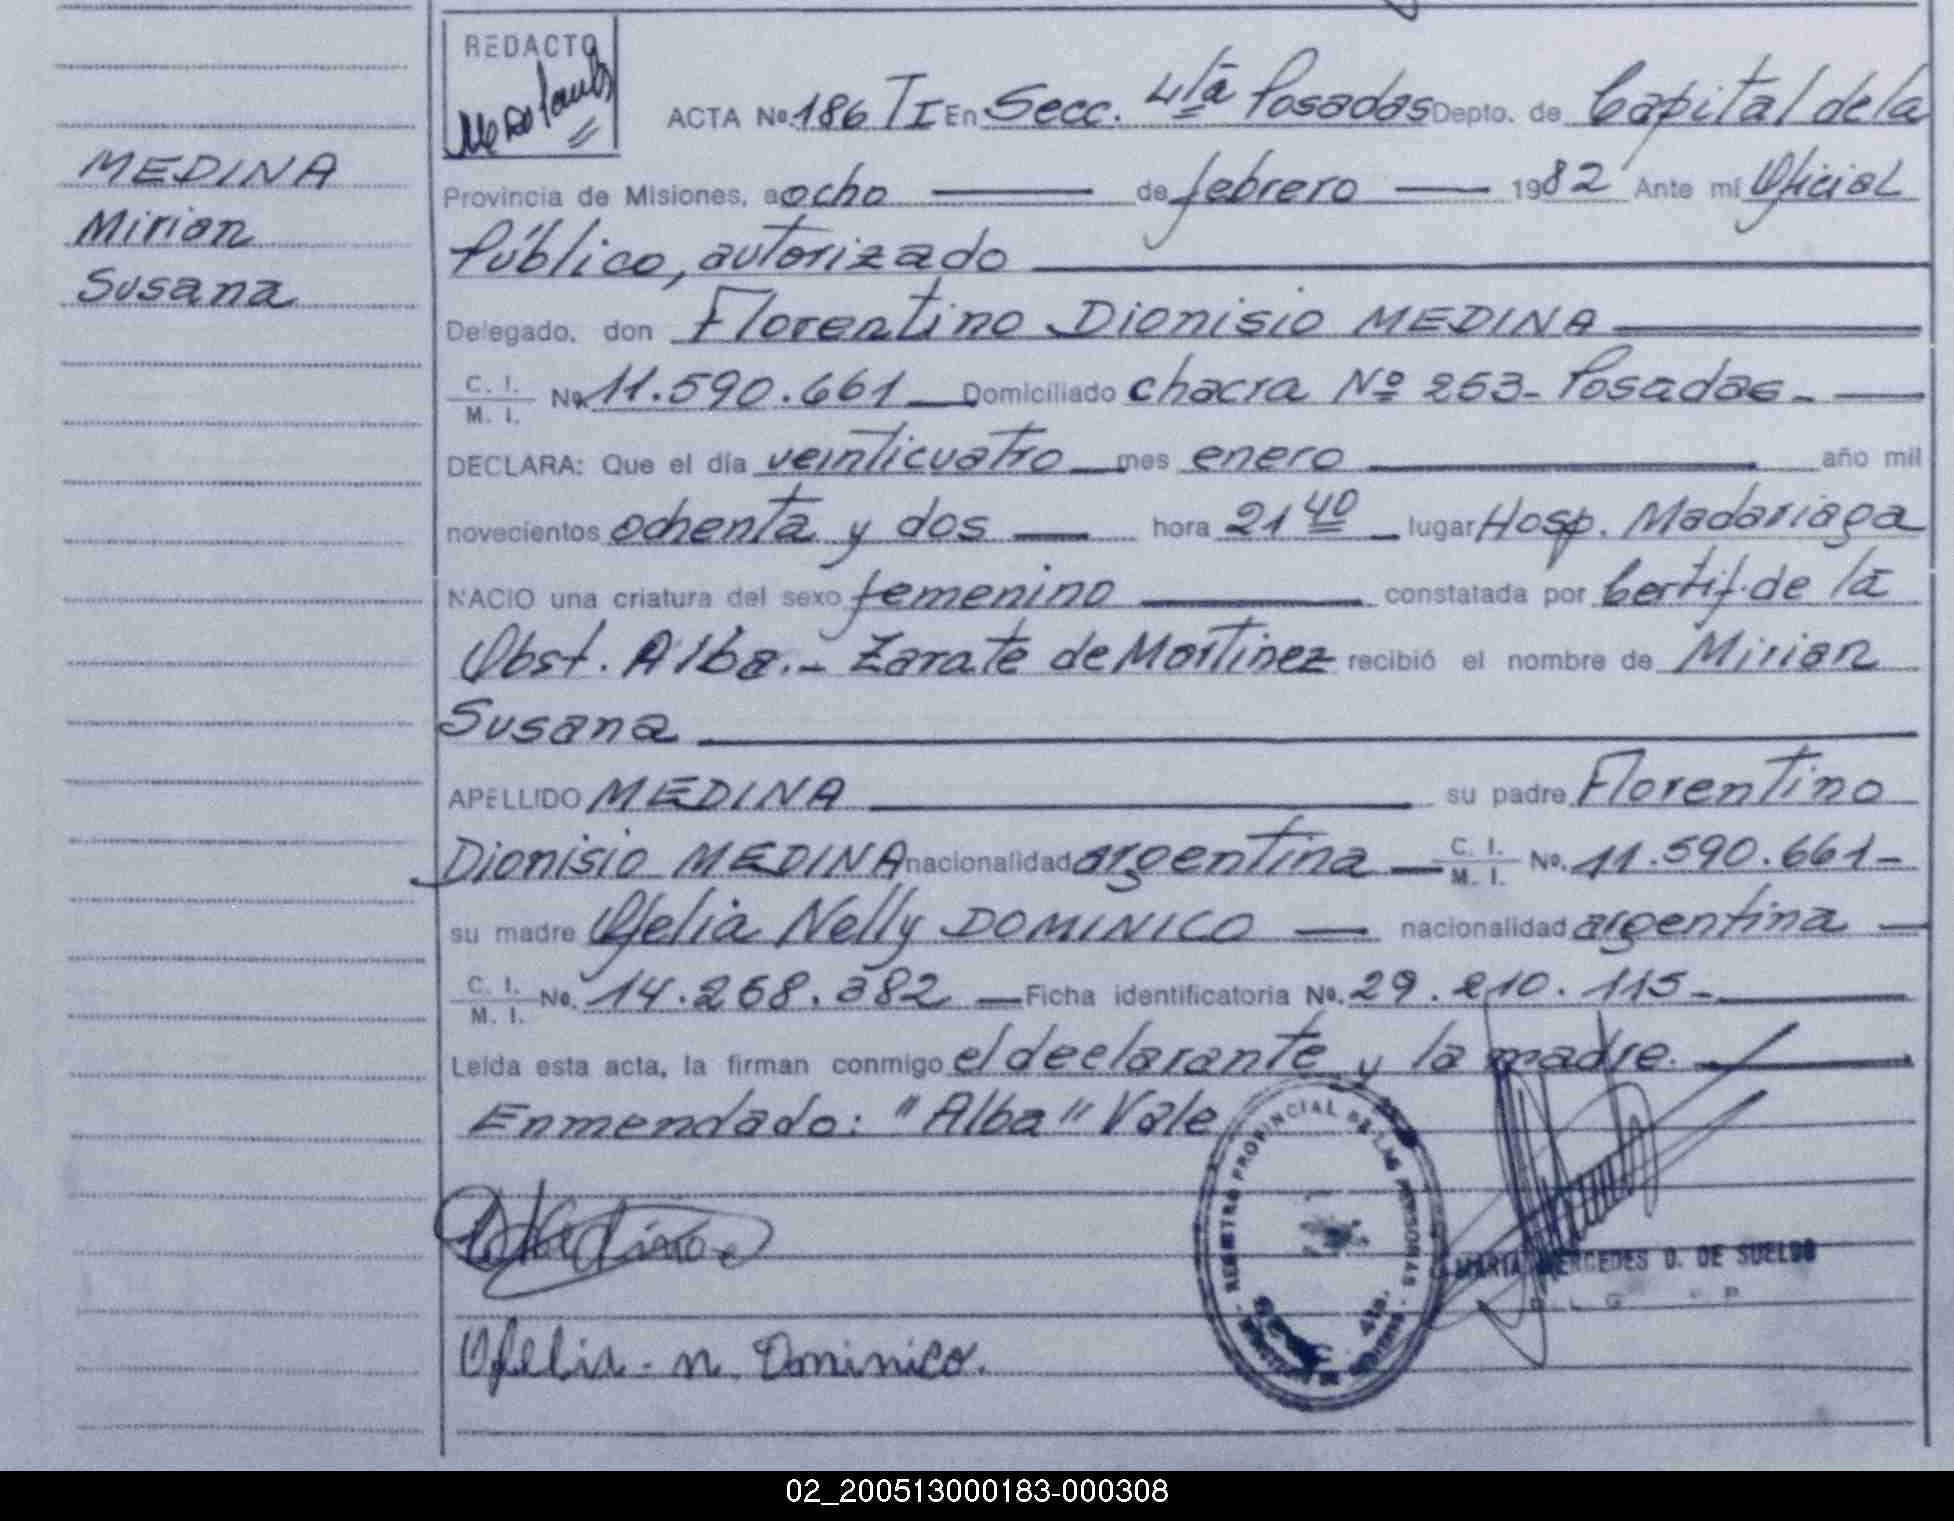 REDACTO
ACTA Nº 186 TI En Secc. 4ta Posadas Depto. de Capital de la
MEDINA
Mirian
Susana
Provincia de Misiones, a ocho de febrero 1982 Ante mí Oficial
Público, autorizado
Delegado, don Florentino Dionisio MEDINA
C. I.
M. I. Nº 11.590.661 Domiciliado chacra Nº 253- Posadas-
DECLARA: Que el día veinticuatro mes enero año mil
novecientos ochenta y dos hora 21 40 lugar Hosp. Madariaga
NACIO una criatura del sexo femenino constatada por Certif. de la
Obst. Alba.- Zarate de Martinez recibió el nombre de Mirian
Susana
APELLIDO MEDINA su padre Florentino
Dionisio MEDINA nacionalidad argentina C. I. M. I. Nº. 11.590.661-
su madre Ofelia Nelly DOMINICO nacionalidad argentina
C. I.
M. I. Nº. 14.268.382 Ficha identificatoria Nº. 29.210.115-
Leída esta acta, la firman conmigo el declarante y la madre.
Enmendado: "Alba" Vale
REGISTRO PROVINCIAL DE LAS PERSONAS
MARIA MERCEDES D. DE SUELDO
Ofelia - n. Dominico.
02_200513000183-000308